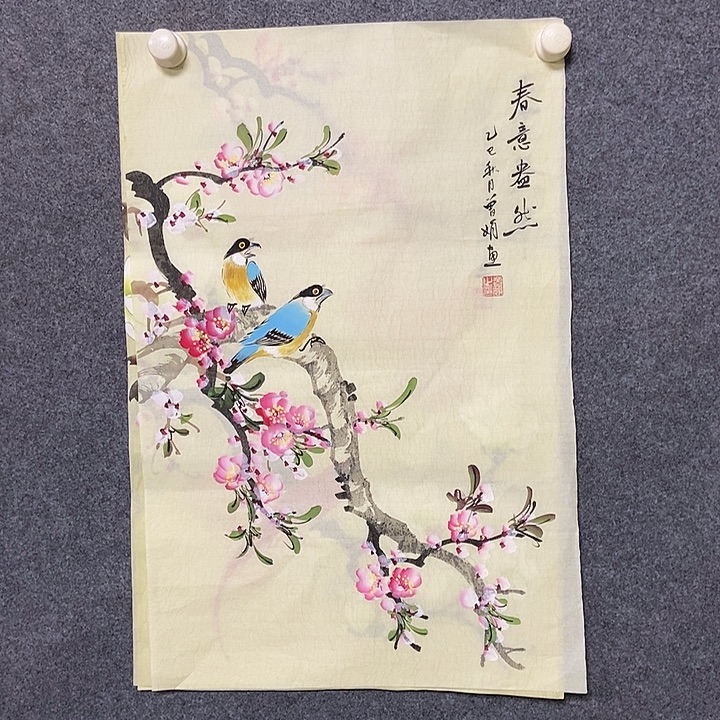 春意盎然
乙巳秋月曾娟画